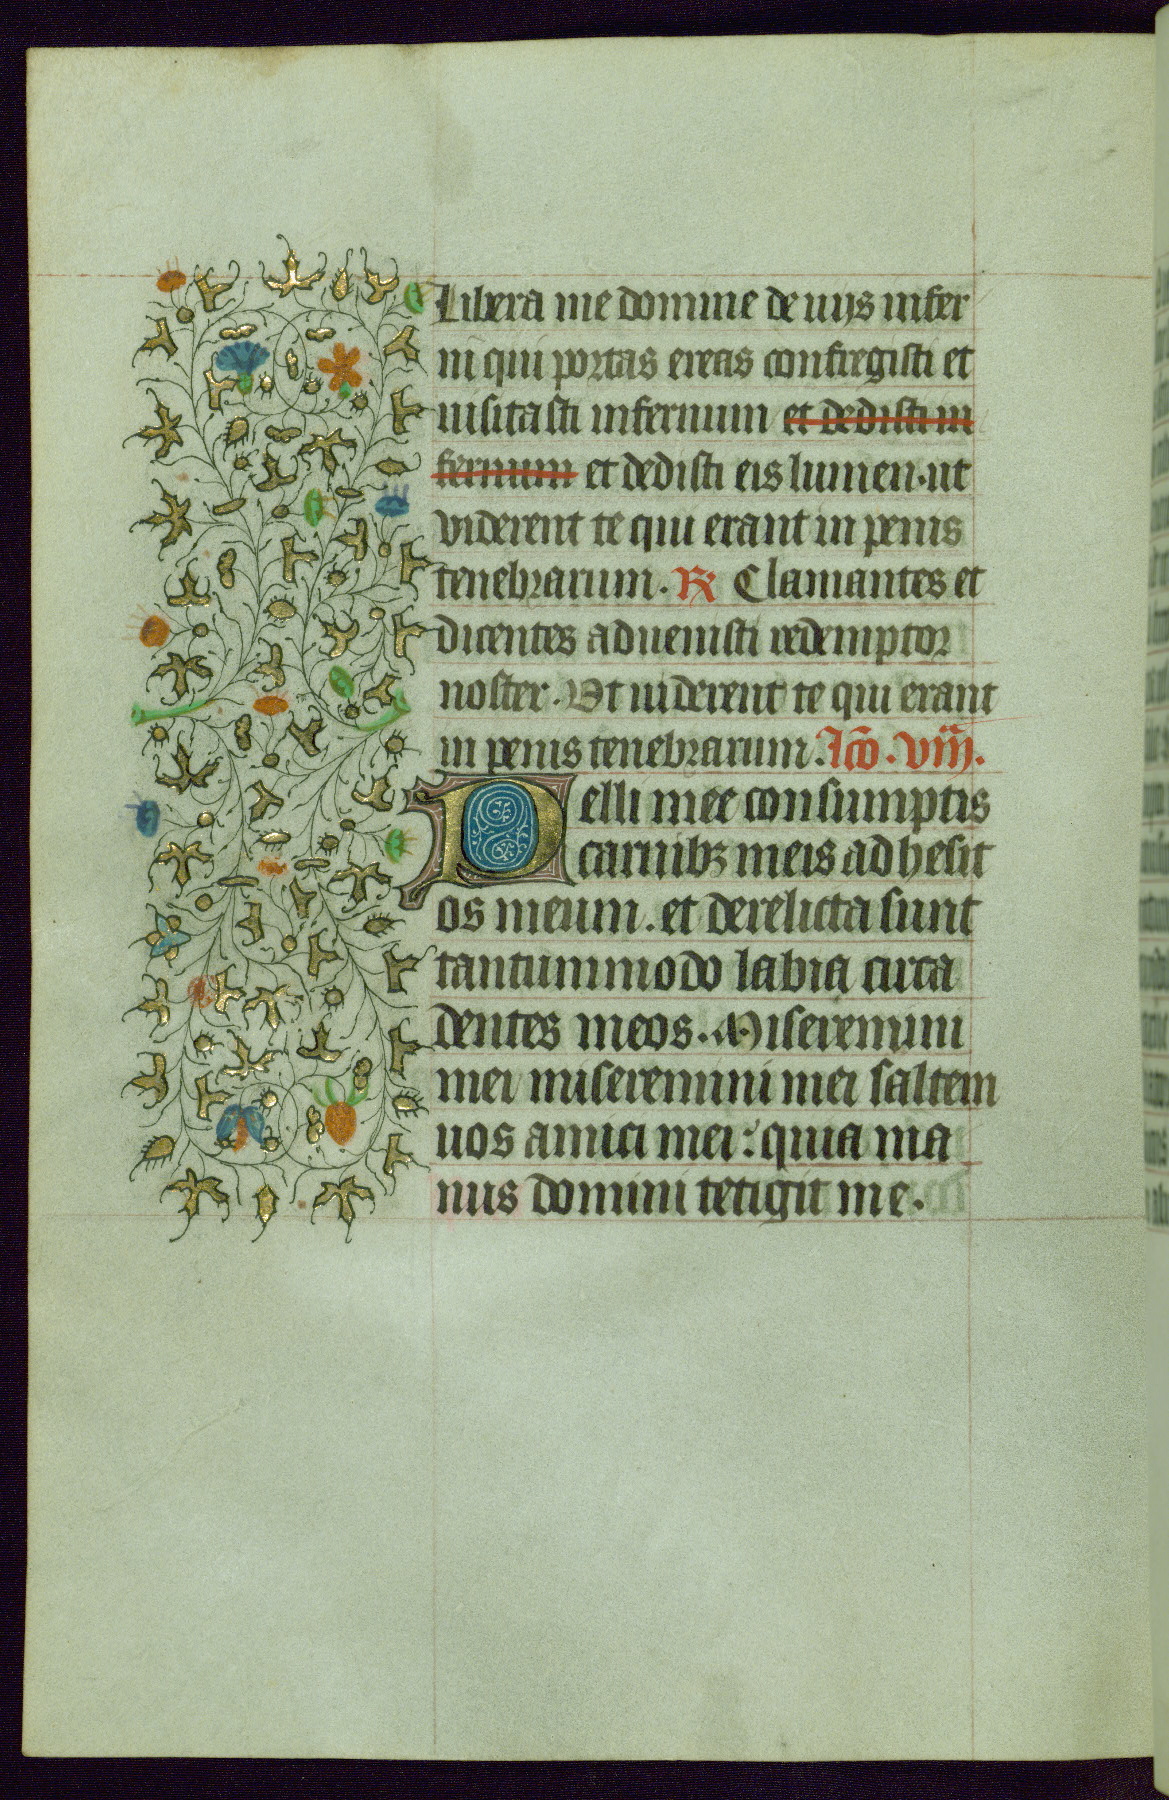 Libera me domine de uijs infer
ni qui portas ereas confregisti et
uisitasti infernum et dedisti in
fernum et dedisti eis lumen. ut
viderent te qui erant in penis
tenebrarum. ℟ Clamantes et
dicentes aduenisti redemptor
noster. Vt uiderent te qui erant
in penis tenebrarum. lc̄o. viij.
Pelli mee consumptis
carnibꝫ meis adhesit
os meum. et derelicta sunt
tantummodo labia circa
dentes meos. Miseremini
mei miseremini mei saltem
uos amici mei: quia ma
nus domini tetigit me.